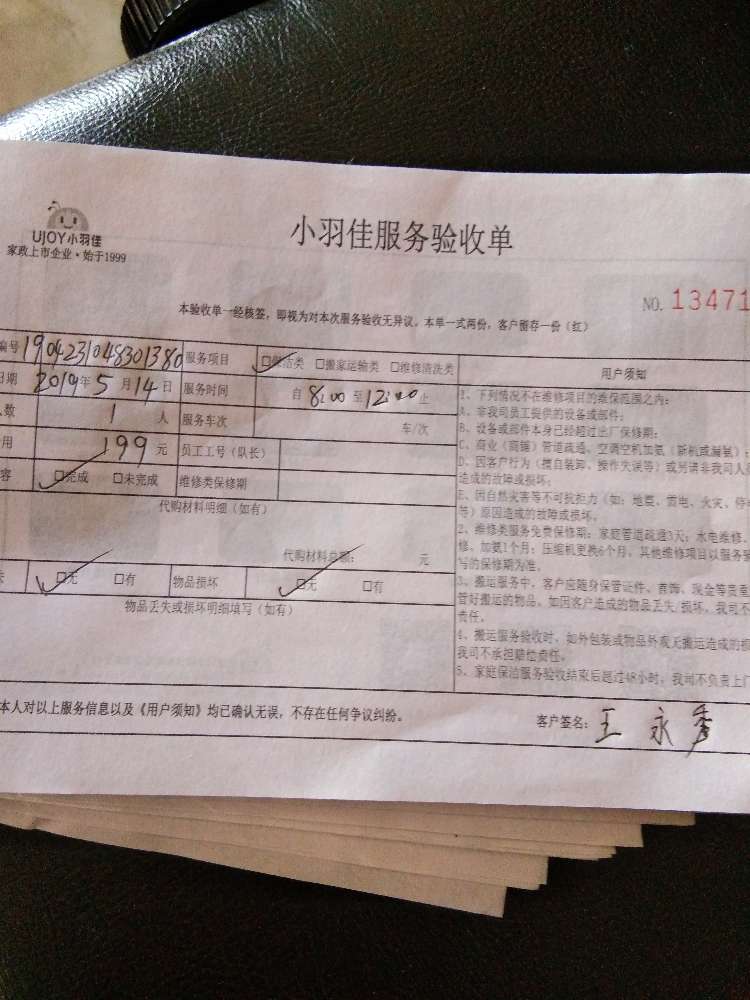 UJOY小羽佳
家政上市企业·始于1999
小羽佳服务验收单
NO. 13471
本验收单一经核签，即视为对本次服务验收无异议。本单一式两份，客户留存一份（红）
编号 1904231048301380 服务项目 □保洁类 □搬家运输类 □维修清洗类 用户须知
日期 2019年5月14日 服务时间 自 8:00 至 12:00 止
人数 1 人 服务车次 车/次
用 199 元 员工工号（队长）
容 □完成 □未完成 维修类保修期
代购材料明细（如有）
代购材料总额： 元
□无 □有 物品损坏 □无 □有
物品丢失或损坏明细填写（如有）
1、下列情况不在维修项目的维保范围之内：
A、非我司员工提供的设备或部件；
B、设备或部件本身已经超过出厂保修期；
C、商业（商铺）管道疏通、空调空机加氨（新机或漏氨）；
D、因客户行为（擅自装卸、操作失误等）或另请非我司人
造成的故障或损坏；
E、因自然灾害等不可抗拒力（如：地震、雷电、火灾、停
等）原因造成的故障或损坏。
2、维修类服务免费保修期：家庭管道疏通3天；水电维修、
修、加氨1个月；压缩机更换6个月，其他维修项目以服务
写的保修期为准。
3、搬运服务中，客户应随身保管证件、首饰、现金等贵重
管好搬运的物品，如因客户造成的物品丢失/损坏，我司不
责任。
4、搬运服务验收时，如外包装或物品外观无搬运造成的
我司不承担赔偿责任。
5、家庭保洁服务验收结束后超过48小时，我司不负责上门
本人对以上服务信息以及《用户须知》均已确认无误，不存在任何争议纠纷。 客户签名：王永秀